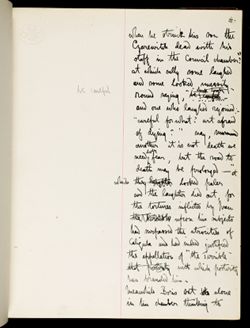 when he struck his son the
Czarewitch dead with his
staff in the Council chamber"
at which sally some laughed
and some looked
round saying, be careful
be careful
and one who laughed rejoined
"careful for what? art afraid
of dying?" "nay
another it is not death we
need fear but the road to
death may be prolonged" - at
which looked paler
and the laughter died out, for
the tortures inflicted by Ivan
upon his subjects
had surpassed the atrocities of
Caligula and had indeed justified
the appellation of "the terrible"
with which posterity
has branded him.
Meanwhile Boris sat alone
in his chamber thinking the